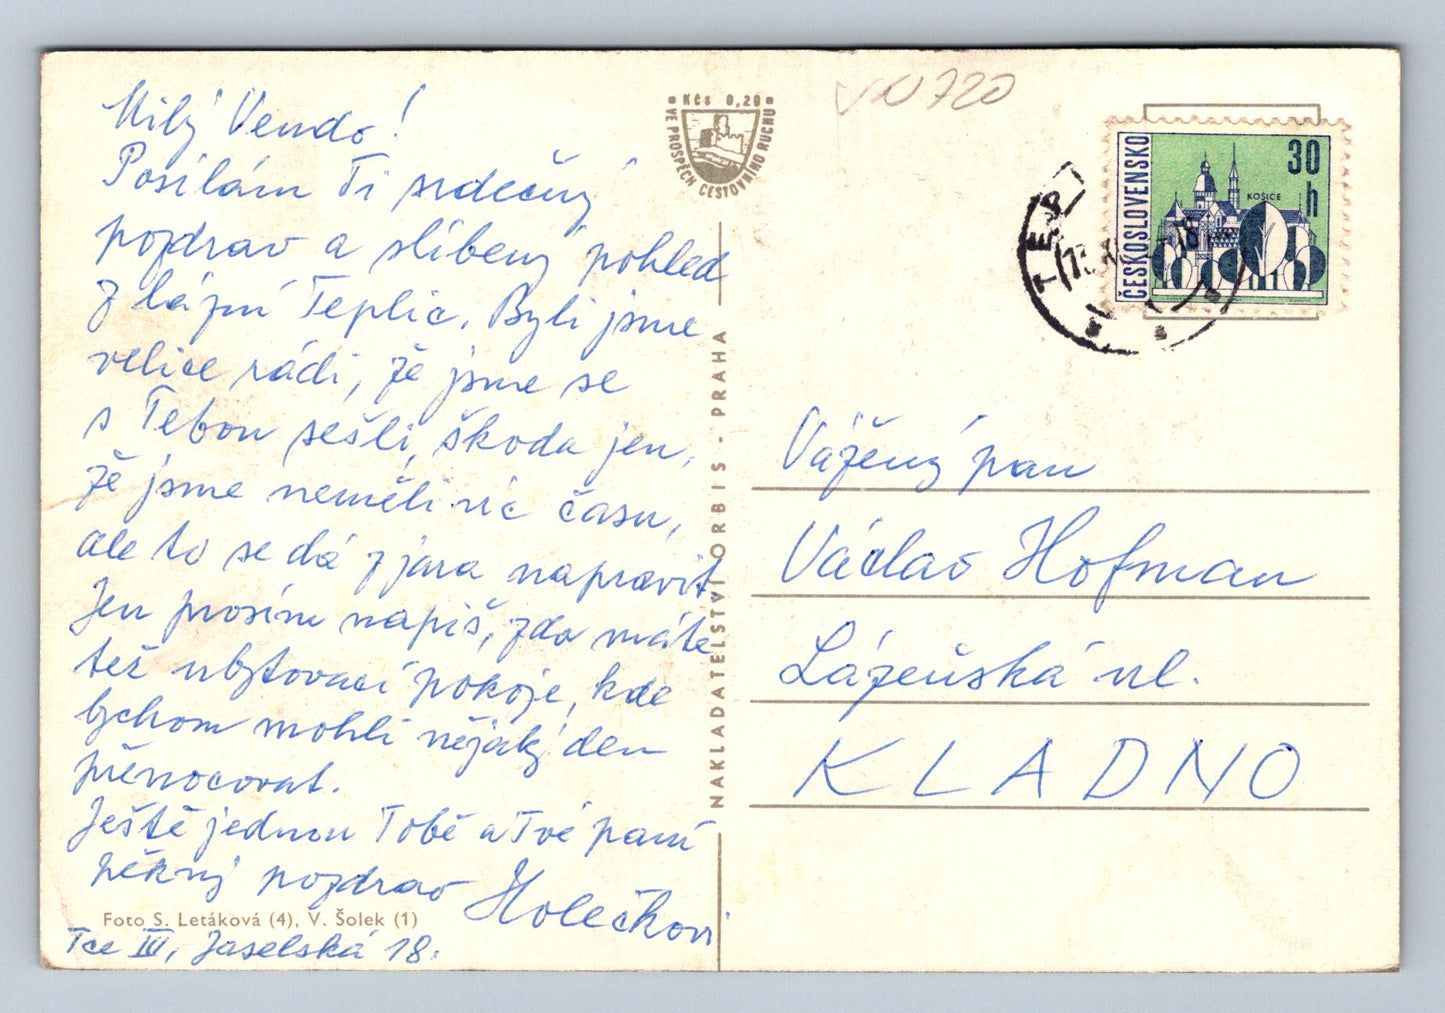 Milý Vendo!
Posílám Ti srdečný
pozdrav a slíbený pohled
z lázní Teplic. Byli jsme
velice rádi, že jsme se
s Tebou sešli, škoda jen,
že jsme neměli víc času,
ale to se dá z jara napravit.
Jen prosím napiš, zda máte
též ubytovací pokoje, kde
bychom mohli nějaký den
přenocovat.
Ještě jednou Tobě a Tvé paní
pěkný pozdrav Holečkovi
Foto S. Letáková (4), V. Šolek (1)
Tce III, Jaselská 18.
Kčs 0,20
VE PROSPĚCH CESTOVNÍHO RUCHU
NAKLADATELSTVÍ ORBIS · PRAHA
720
ČESKOSLOVENSKO
30
h
KOŠICE
TEP
Vážený pan
Václav Hofman
Lázeňská ul.
KLADNO